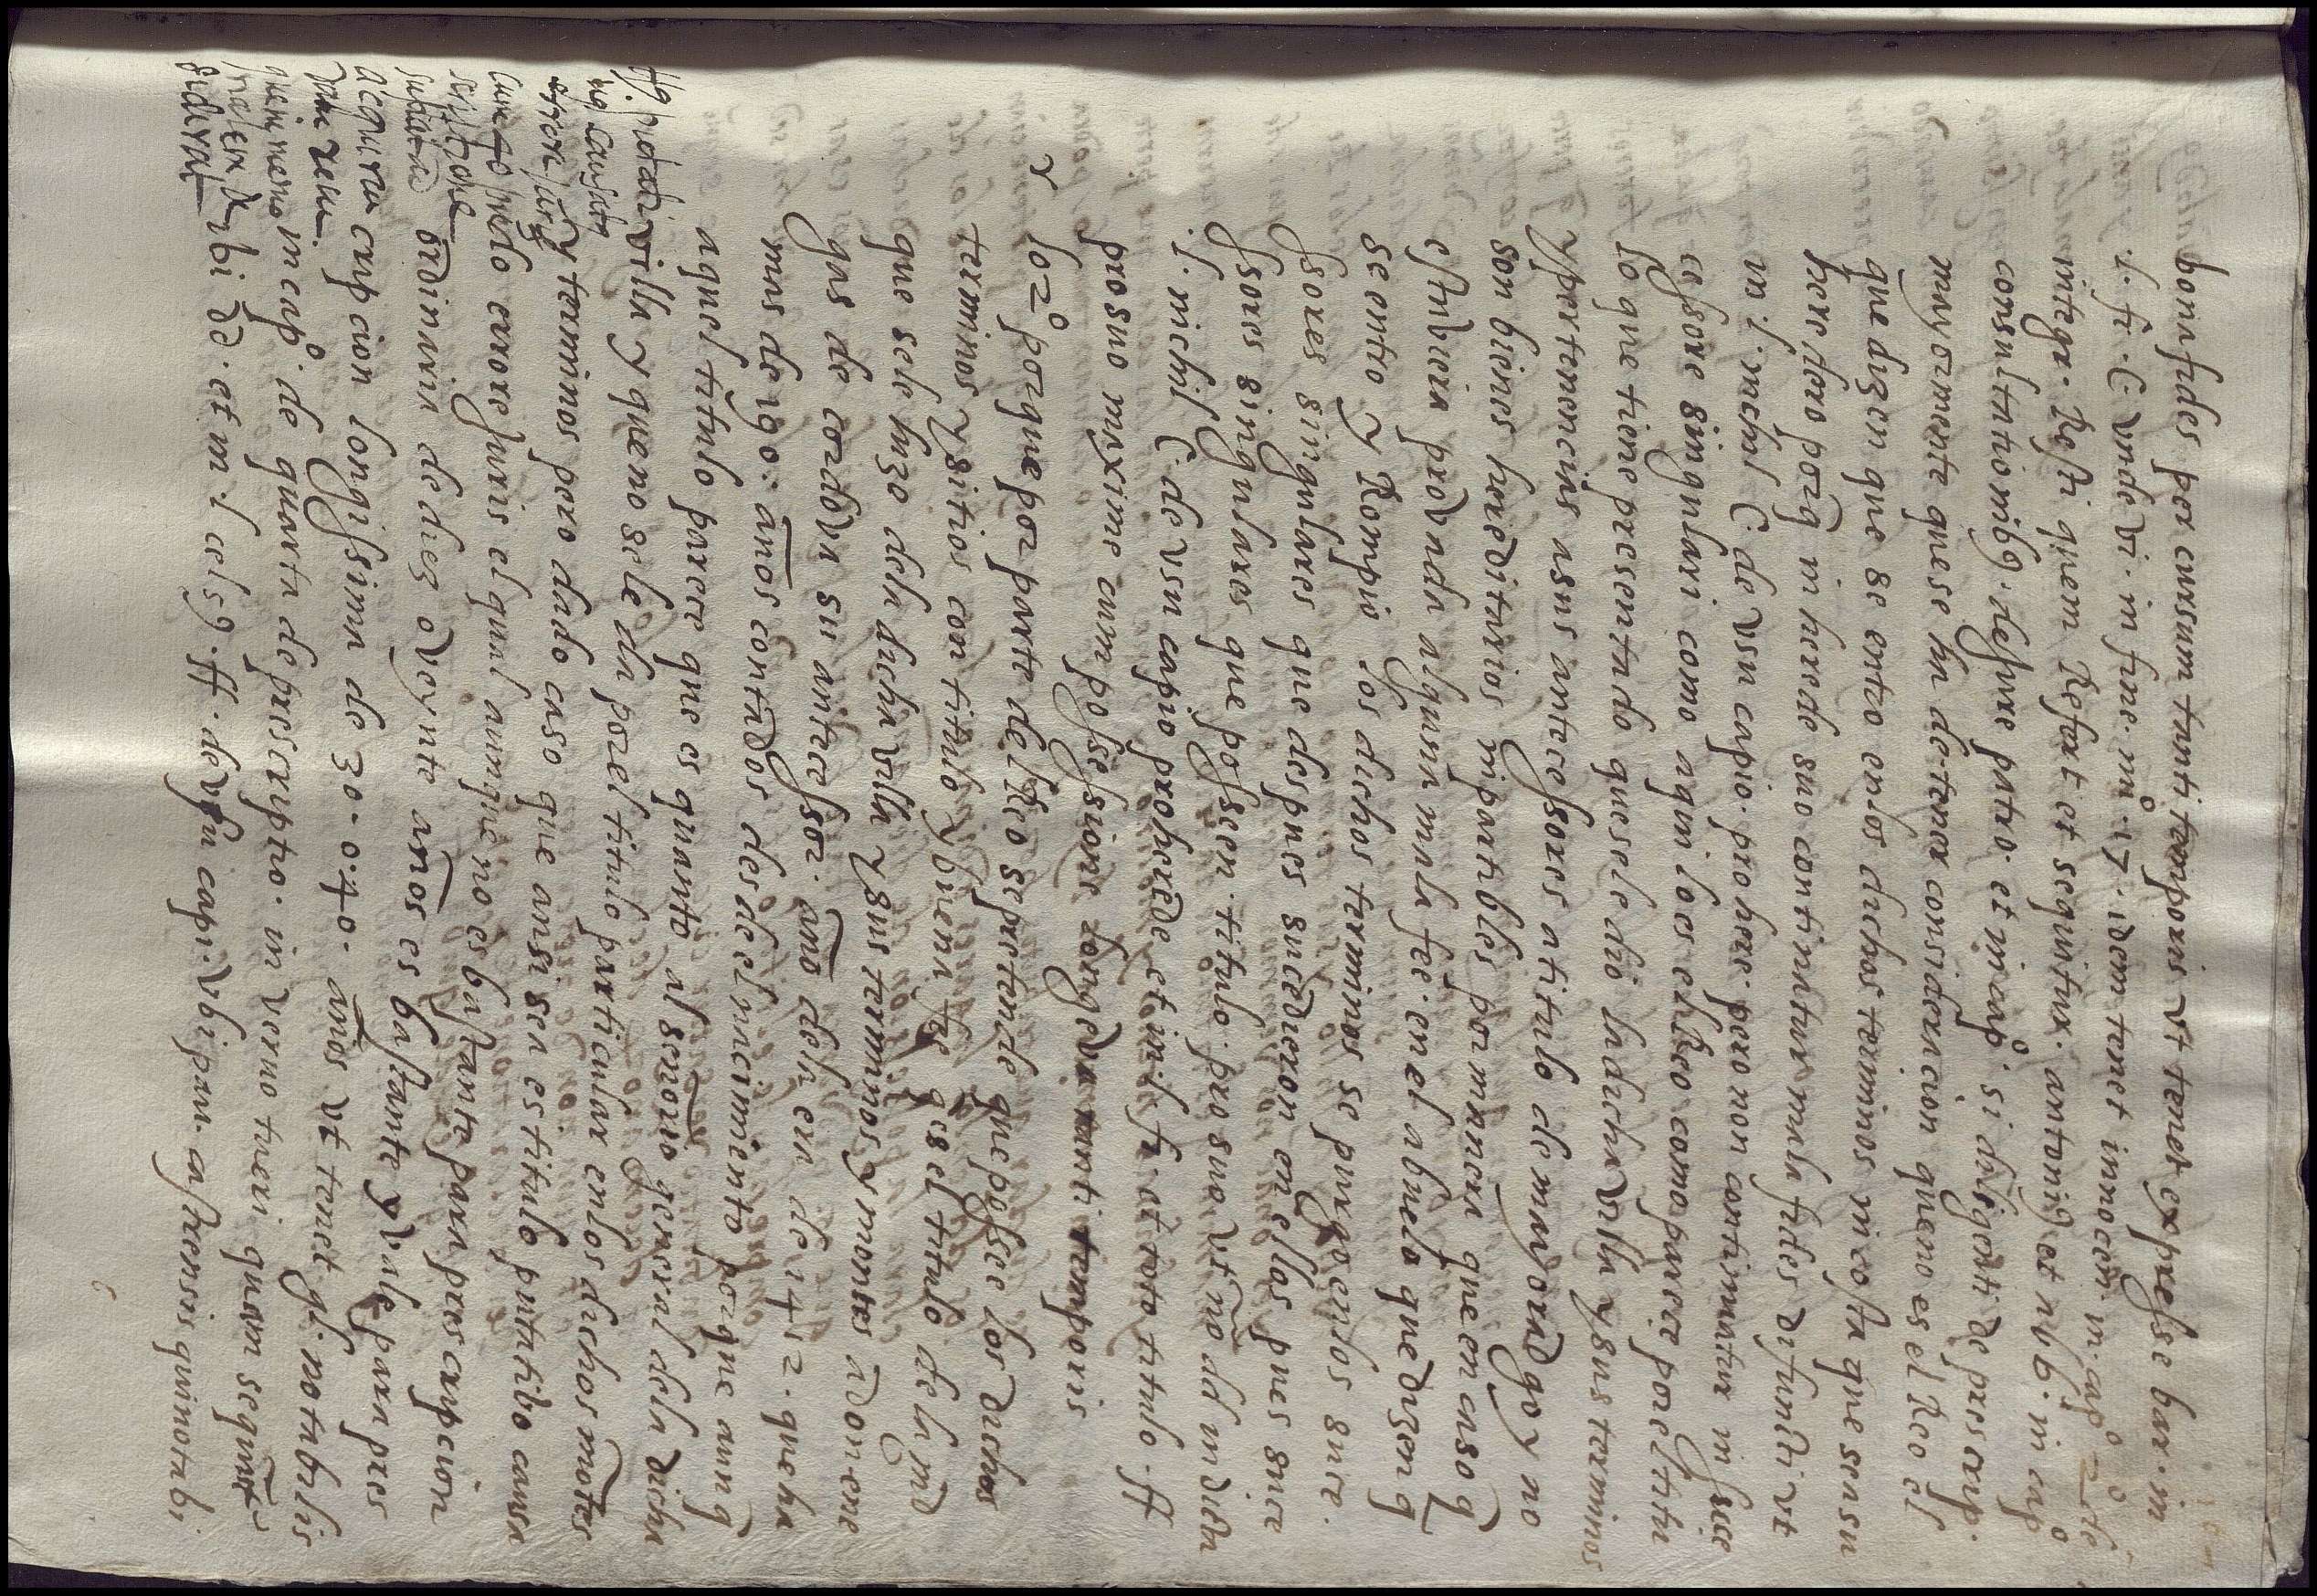 bonafides per cursum tanti temporis vt tenet expresse bar. in
l. fi. C. unde vi. in fine. nu.º 17. idem tenet innocen. in. capº 2º de
integr. Resti quem Refert et sequitur. antonig et abb. in capº
consultationibg. de jure patro. et in capº si diligenti de prescrip.
mayormente que se ha de tener consideracion que no es el Reo el
que dizen que se entro en los dichos terminos ni costa que sea su
heredero porq in herede suo continuatur mala fides difunti vt
in l. nichil C. de vsu capio. pro here. pero non continuatur in suc
cesore singulari como aqui lo es el dho Reo como parece por el titu
lo que tiene presentado que se le dio la dicha villa y sus terminos
y pertenencias a sus antecessores a titulo de mayoradgo y no
son bienes hereditarios ni partibles por manera que en caso q
estuviera provada alguna mala fee. en el abuelo que dizen q
se entro y Rompio los dichos terminos se purgo en los suce.
sores singulares que despues sucedieron en ellos pues suce
ssores singulares que posseen. titulo. pro suo. vt no. dd in dicta
.l. nichil C. de vsu capio pro herede et in l. fi. at toto titulo. ff
pro suo maxime cum possessione longeva tanti temporis
r
lo 2º porque por parte del Reo se pretende que possee los dichos
terminos y sitios con titulo y buena fee q es el titulo de la md
que se le hizo de la dicha villa y sus terminos y montes a don ene
gas de cordova su antecessor. año de la era de 1412. que ha
mas de 190: años contados desde el nacimiento porque aunq
aquel titulo parece que es quanto al señorio general de la dicha
villa y que no se le da por el titulo particular en los dichos motes
y terminos pero dado caso que ansi sea es titulo putatibo causa
tº ex errore juris el qual aunque no es bastante para prescripcion
ordinaria de diez o veynte años es bastante y vale para pres
cripcion longissima de 30. o 40. años vt tenet gl. notabilis
in capº. de quarta de prescriptio. in verno tueri quam sequntr
ibi dd. et in l celsg. ff. de vsu capi. vbi pau. castrensis qui notabi